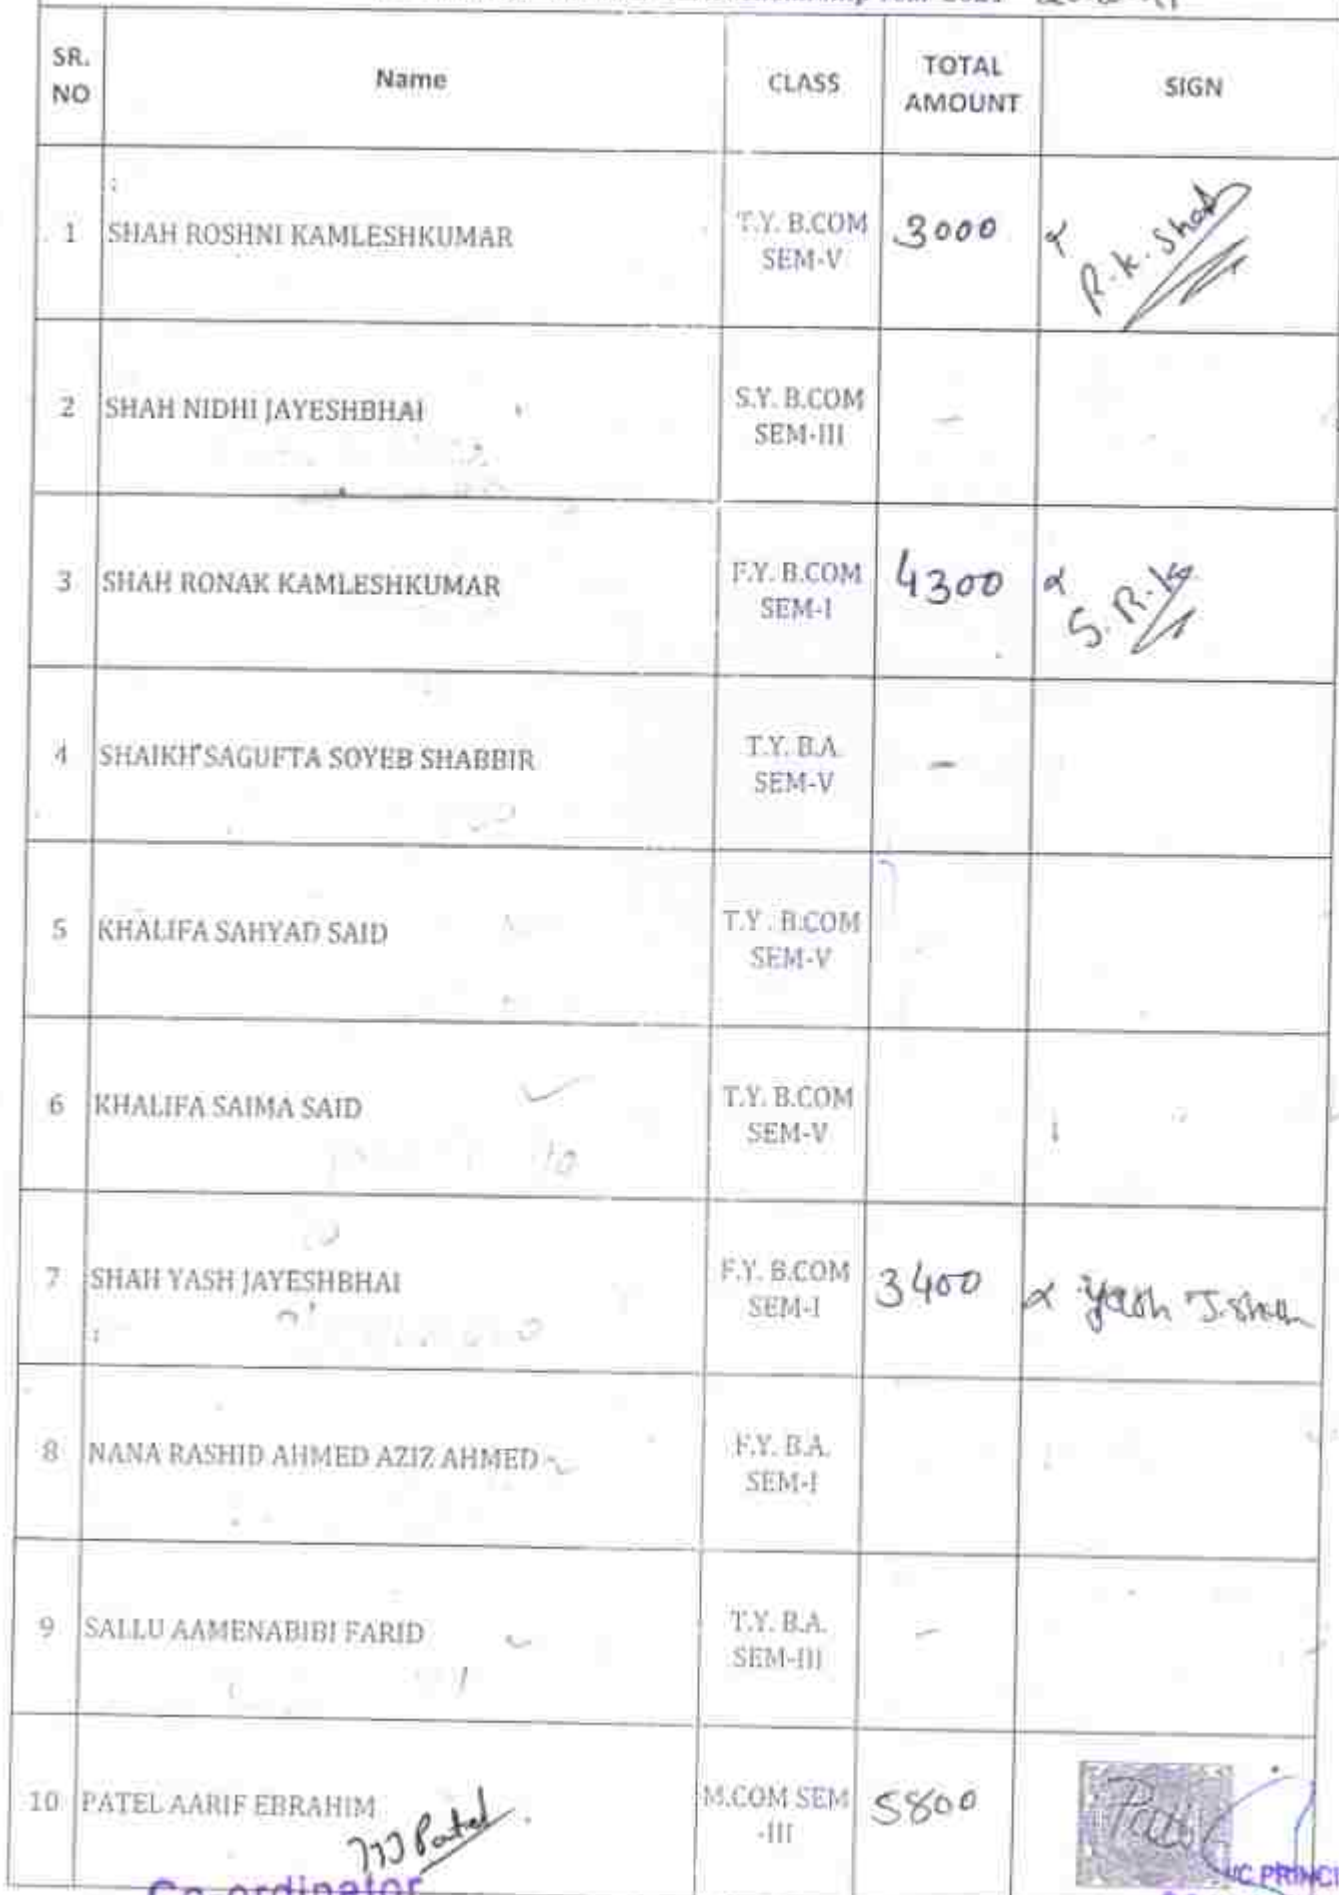 SR. NO Name CLASS TOTAL AMOUNT SIGN
1 SHAH ROSHNI KAMLESHKUMAR T.Y. B.COM SEM-V 3000 R.K. Shah
2 SHAH NIDHI JAYESHBHAI S.Y. B.COM SEM-III -
3 SHAH RONAK KAMLESHKUMAR F.Y. B.COM SEM-I 4300 S.R.K
4 SHAIKH SAGUFTA SOYEB SHABBIR T.Y. B.A. SEM-V -
5 KHALIFA SAHYAD SAID T.Y. B.COM SEM-V -
6 KHALIFA SAIMA SAID T.Y. B.COM SEM-V
7 SHAH YASH JAYESHBHAI F.Y. B.COM SEM-I 3400 Yash J. Shah
8 NANA RASHID AHMED AZIZ AHMED F.Y. B.A. SEM-I
9 SALLU AAMENABIBI FARID T.Y. B.A. SEM-III -
10 PATEL AARIF EBRAHIM M.COM SEM -III 5800
Patel
Co-ordinator
I/C PRINCI